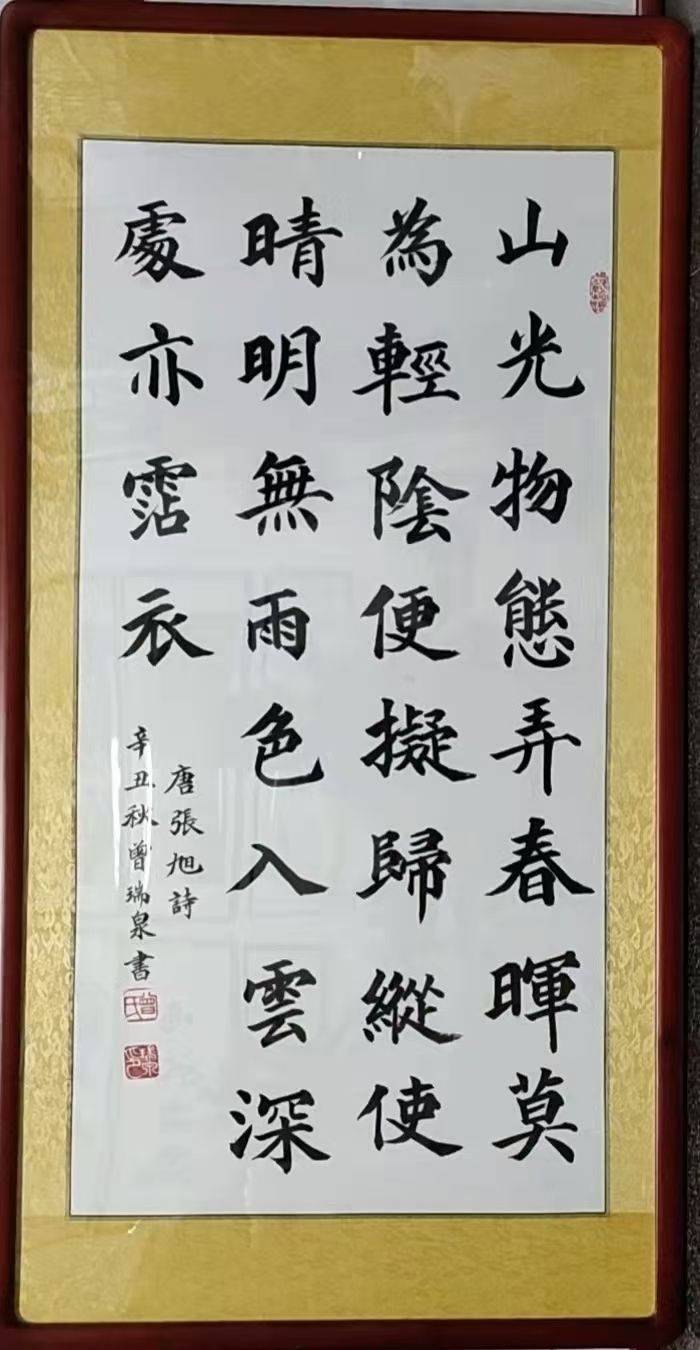 山光物態弄春暉莫
為輕陰便擬歸縱使
晴明無雨色入雲深
處亦霑衣
唐張旭詩
辛丑秋曾瑞泉書
曾氏